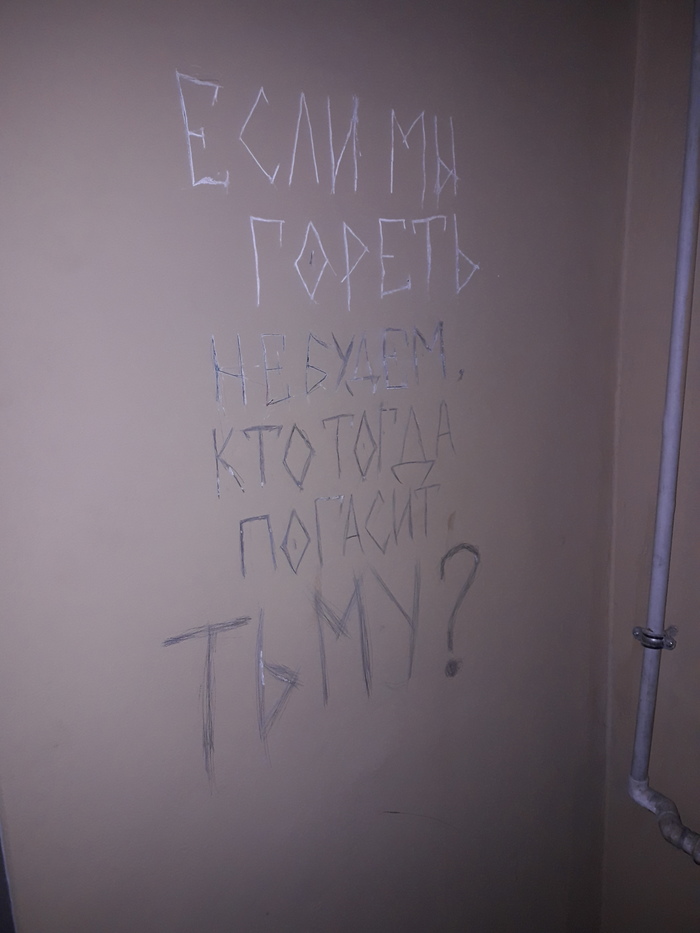 ЕСЛИ МЫ
ГОРЕТЬ
НЕ БУДЕМ,
КТО ТОГДА
ПОГАСИТ
ТЬМУ?